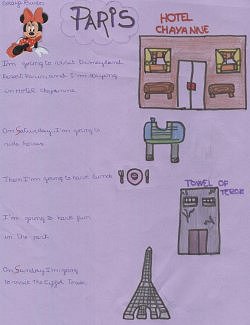 PARIS
HOTEL
CHAYANNE
I'm going to visit Disneyland
Resort Paris and I'm staying
in Hotel Chayanne
On Saturday I'm going to
ride horses
Then I'm going to have lunch
TOWEL OF
I'm going to have fun
in the park
On Sunday I'm going
to visit the Eiffel Tower